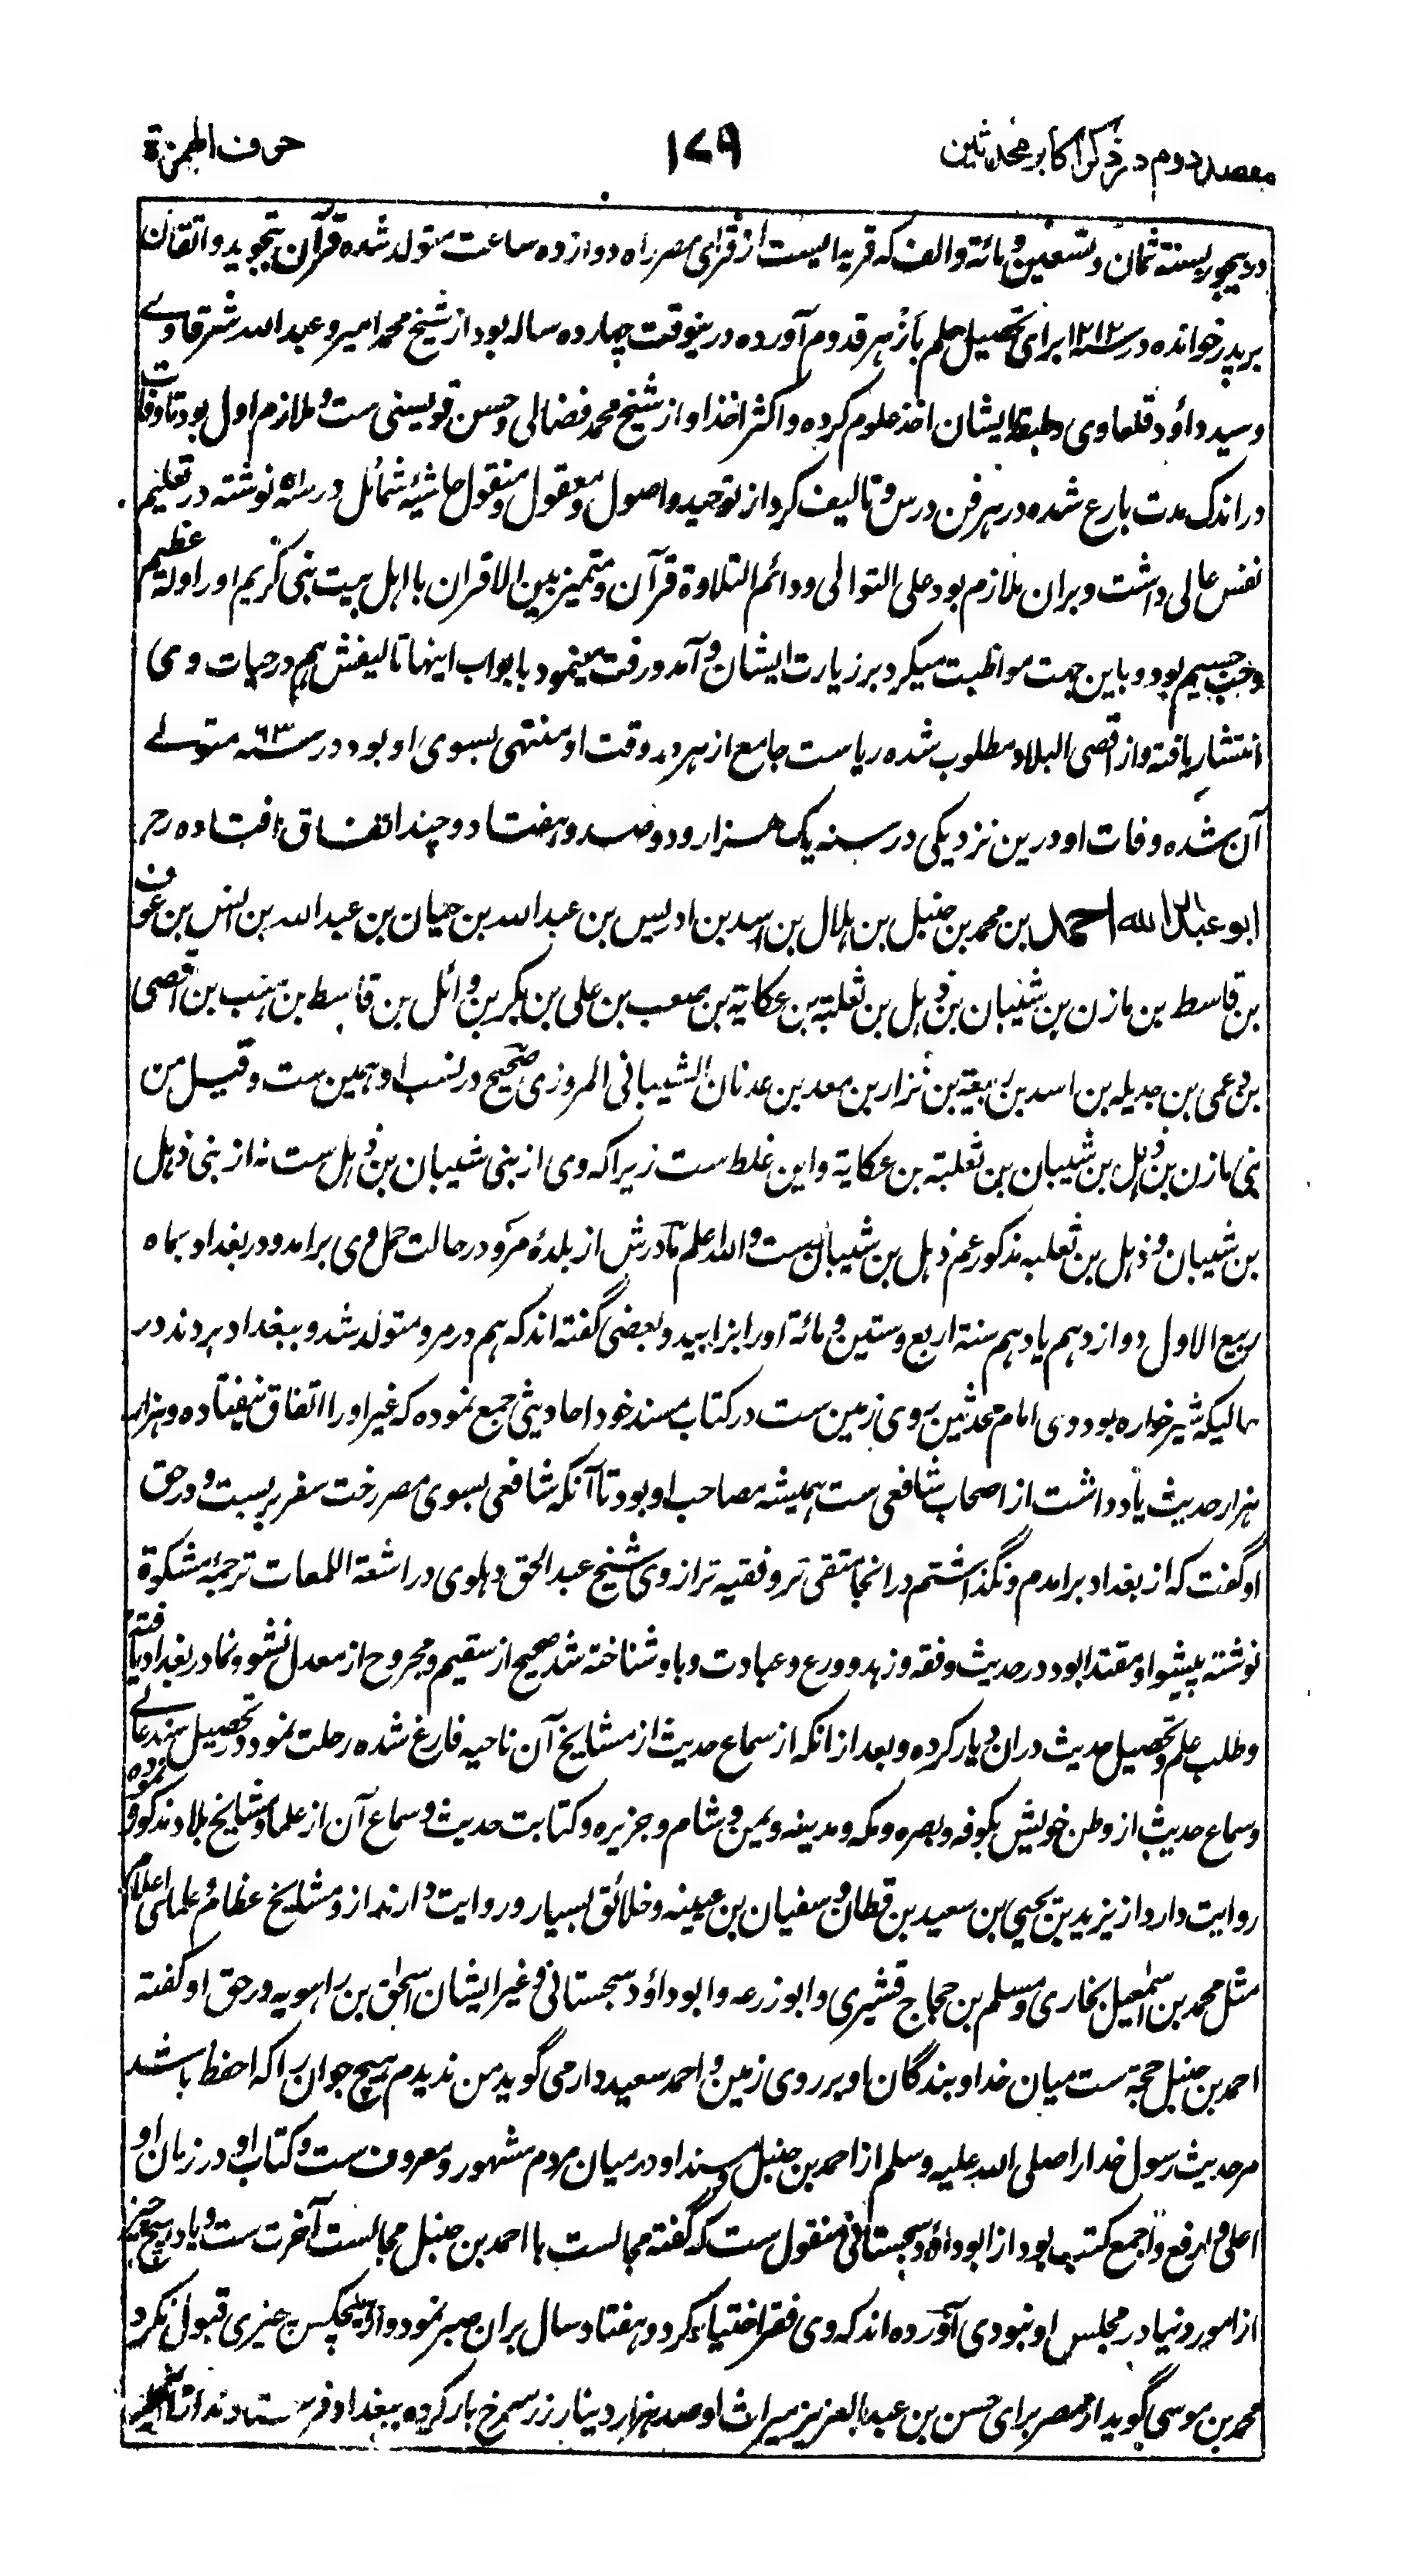 مقصد دوم در ذکر اکابر محدثین ۱۷۹ حرف الهمزة
در بیجور بسنته ثمان و تسعین و مائة و الف که قریه ایست از قرای مصر راه دوازده ساعت متولد شده قرآن بتجوید و اتقان
بر پدر خوانده در سنه ۱۲۱۲ برای تحصیل علم بازهر قدوم آورده درینوقت چهارده ساله بود از شیخ محمد امیر و عبد الله شرقاوے
و سید داؤد قلعاوی و طبقهٔ ایشان اخذ علوم کرده و اکثر اخذ او از شیخ محمد فضالی و حسن قویسنی ست و ملازم اول بود تا وفات
در اندک مدت بارع شده در هر فن درس و تالیف کرد از توحید و اصول و معقول و منقول حاشیهٔ شمائل در سنه ۵۱ نوشته در تعلیم
نفس عالی داشت و بران ملازم بود علی التوالی و دائم التلاوة قرآن و متمیز بین الاقران با اهل بیت نبی کریم او را وله عظیم
و حب جسیم بود و باین جهت مواظبت میکرد بر زیارت ایشان و آمد و رفت مینمود بابواب اینها تالیفش هم در حیات وی
انتشار یافته و از اقصی البلاد مطلوب شده ریاست جامع ازهر در وقت او منتهی بسوی او بود در سنه ۶۳ متولے
آن شده وفات او درین نزدیکی در سنه یک هزار و دو صد و هفتاد و چند اتفاق افتاده رح
ابو عبد الله احمد بن محمد بن حنبل بن هلال بن اسد بن ادریس بن عبد الله بن حیان بن عبد الله بن انس بن عوف
بن قاسط بن مازن بن شیبان بن ذهل بن ثعلبة بن عکایة بن صعب بن علی بن بکر بن وائل بن قاسط بن هنب بن اقصی
بن دعمی بن جدیله بن اسد بن ربیعة بن نزار بن معد بن عدنان الشیبانی المروزی صحیح در نسب او همین ست و قیل من
بنی مازن بن ذهل بن شیبان بن ثعلبة بن عکایة و این غلط ست زیرا که وی از بنی شیبان بن ذهل ست نه از بنی ذهل
بن شیبان و ذهل بن ثعلبه مذکور عم ذهل بن شیبان ست و الله اعلم مادرش از بلدهٔ مرو در حالت حمل وی برامد و در بغداد بماه
ربیع الاول دوازدهم یا دهم سنة اربع و ستین و مائة او را بزایید و بعضی گفته اند که هم در مرو متولد شد و ببغداد بردند در
حالیکه شیر خواره بود وی امام محدثین روی زمین ست در کتاب مسند خود احادیثی جمع نموده که غیر او را اتفاق نیفتاده و هزار
هزار حدیث یاد داشت از اصحاب شافعی ست همیشه مصاحب او بود تا آنکه شافعی بسوی مصر رخت سفر بربست و در حق
او گفت که از بغداد برامدم و نگذاشتم در انجا متقی تر و فقیه تر از وی شیخ عبد الحق دهلوی در اشعة اللمعات ترجمهٔ مشکوة
نوشته پیشوا و مقتدا بود در حدیث و فقه و زهد و ورع و عبادت و باو شناخته شد صحیح از سقیم و مجروح از معدل نشو و نما در بغداد یافته
و طلب علم و تحصیل حدیث دران دیار کرده و بعد از انکه از سماع حدیث از مشایخ آن ناحیه فارغ شده رحلت نمود در تحصیل سند عالے
و سماع حدیث از وطن خویش بکوفه و بصره و مکه و مدینه و یمن و شام و جزیره و کتابت حدیث و سماع آن از علما و مشایخ بلاد مذکور نموده و
روایت دارد از یزید بن یحیی بن سعید بن قطان و سفیان بن عیینه و خلائق بسیار و روایت دارند از و مشایخ عظام و علمای اعلام
مثل محمد بن اسمعیل بخاری و مسلم بن حجاج قشیری و ابو زرعه و ابو داؤد سجستانی و غیر ایشان اسحق بن راهویه در حق او گفته
احمد بن حنبل حجة ست میان خدا و بندگان او بر روی زمین و احمد سعید دارمی گوید من ندیدم هیچ جوان را که احفظ باشد
مر حدیث رسول خدا را صلی الله علیه و سلم از احمد بن حنبل و مسند او در میان مردم مشهور و معروف ست و کتاب او در زمان او
اعلی و ارفع و اجمع کتب بود از ابو داؤد سجستانی منقول ست که گفته مجالست با احمد بن حنبل مجالست آخرت ست و یاد هیچ چیز
از امور دنیا در مجلس او نبودی آورده اند که وی فقر اختیار کرد و هفتاد سال بران صبر نمود و از هیچکس چیزی قبول نکرد
محمد بن موسی گوید از مصر برای حسن بن عبد العزیز میراث او صد هزار دینار زر سرخ بار کرده ببغداد فرستادند